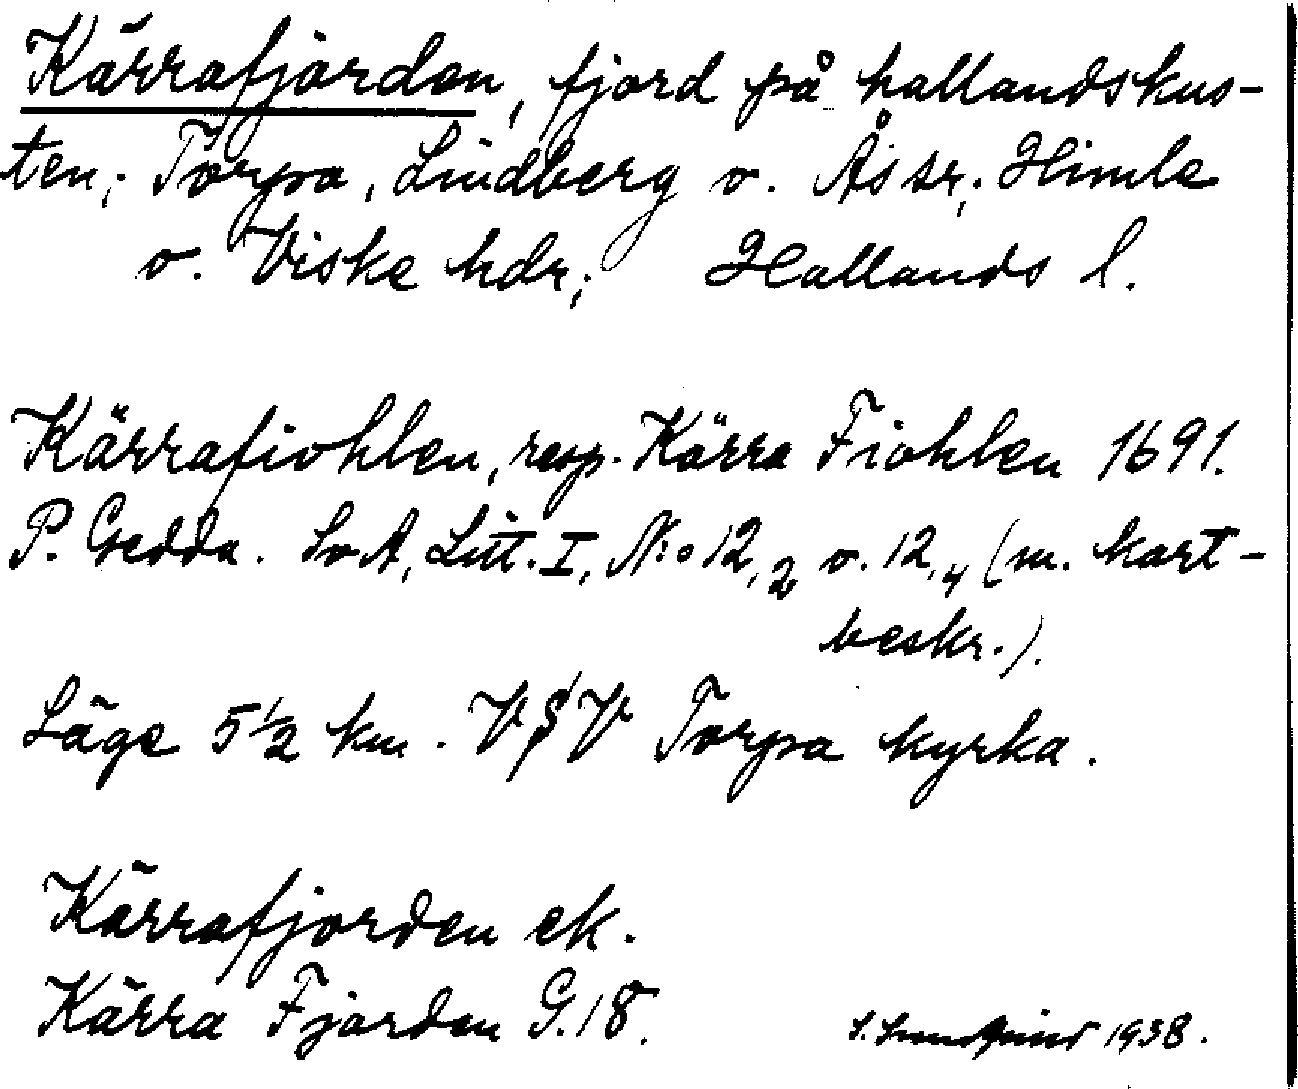 Kärrafjorden, fjord på hallandskus-
ten; Torpa, Lindberg o. Ås sr, Himle
o. Viske hdr; Hallands l.
Kärrafiohlen, resp. Kärra Fiohlen 1691.
P. Gedda. SvA, Litt. I, N:o 12,2 o. 12,4 (m. kart-
beskr.).
Läge 5 1/2 km. V Torpa kyrka.
Kärrafjorden ek.
Kärra Fjorden G. 18.
1938.